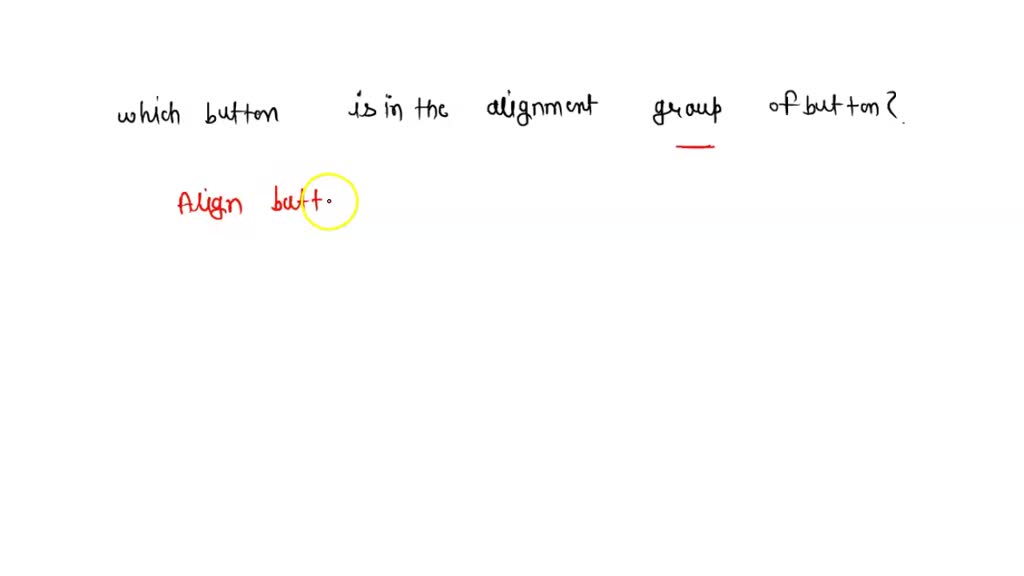 which button is in the alignment group of button?
Align butt